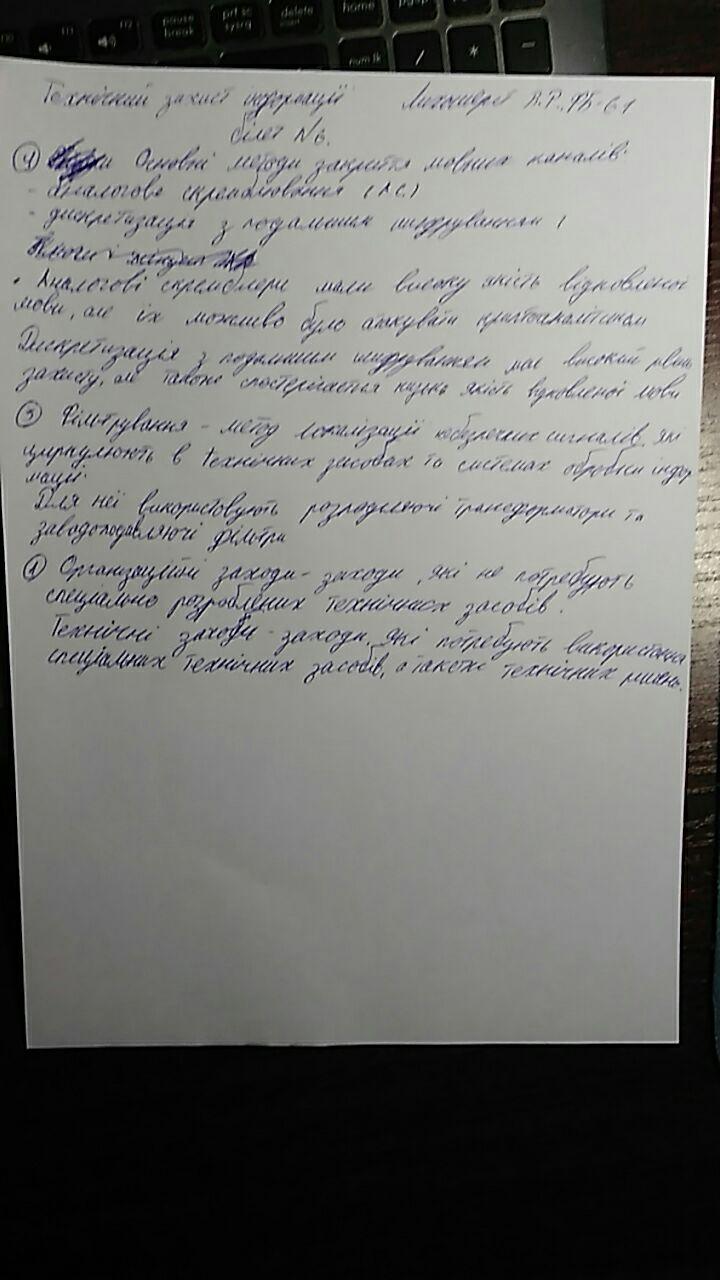 pause break
prt sc sysrq
delete
home
num lk
/
*
-
Технічний захист інформації А.Р. ФБ-61
білет №6.
④ Основні методи закриття мовних каналів:
- аналогове скремблювання (АС)
- дискретизація з подальшим шифруванням
• Аналогові скремблери мали високу якість відновленої
мови, але їх можливо було атакувати криптоаналітиком
Дискретизація з подальшим шифруванням має високий рівень
захисту, але також спостерігається низька якість відновленої мови
③ Фільтрування - метод локалізації небезпечних сигналів, які
циркулюють в технічних засобах та системах обробки інфор
мації.
Для неї використовують розділяючі трансформатори та
заводоподавляючі фільтри
① Організаційні заходи - заходи, які не потребують
спеціально розроблених технічних засобів.
Технічні заходи - заходи, які потребують використання
спеціальних технічних засобів, а також технічних рішень.